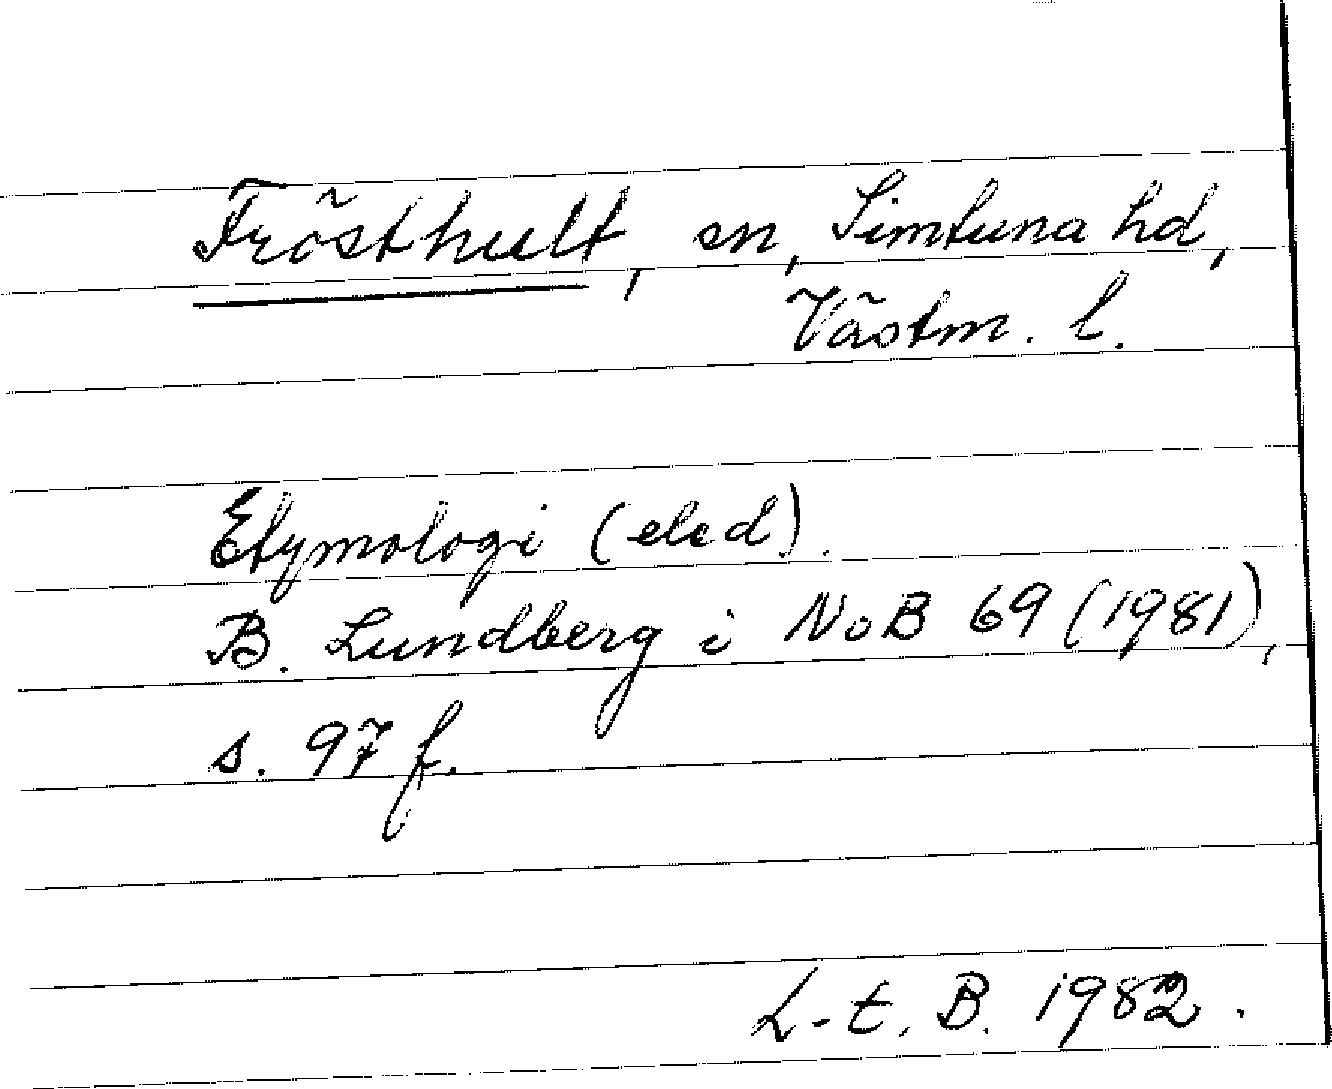 Frösthult, sn, Simtuna hd,
Västm. l.
Etymologi (eled).
B. Lundberg i NoB 69 (1981),
s. 97 f.
L-t. B. 1982.